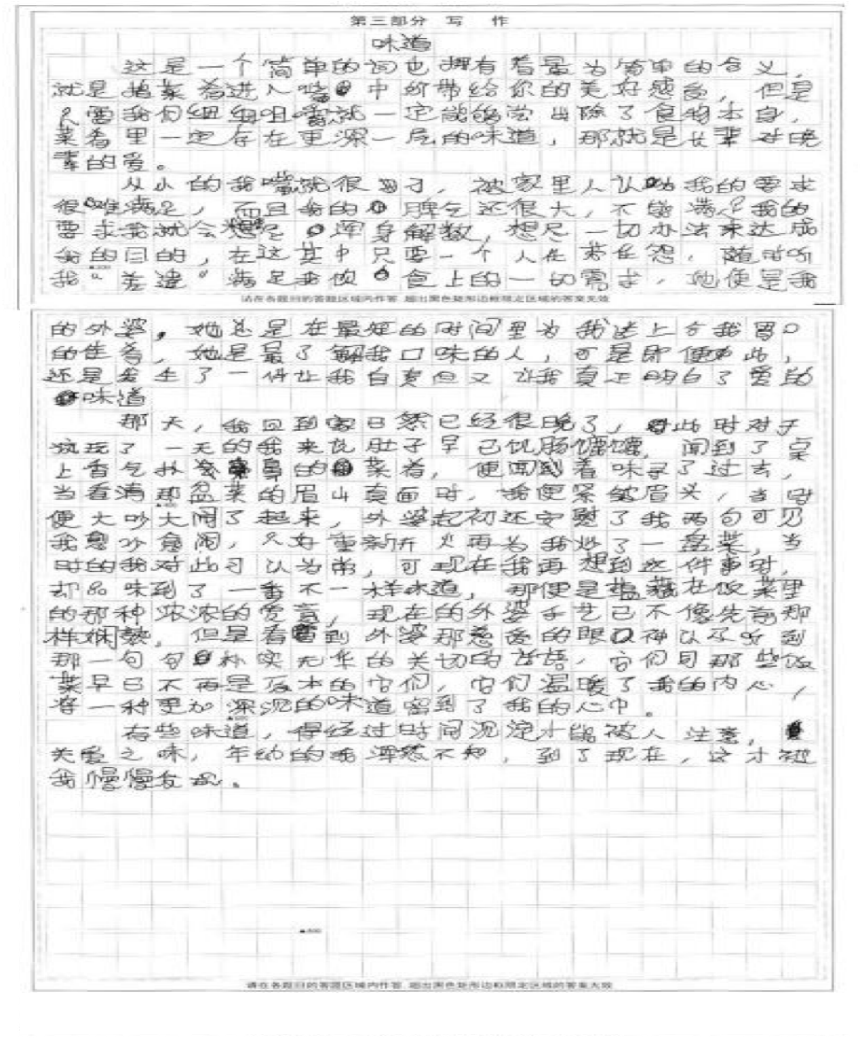 第三部分 写 作
味道
这是一个简单的词也拥有着最为简单的含义，
就是指菜肴进入嘴中所带给你的美好感受，但是
只要我们细细咀嚼就一定能品尝出除了食物本身，
菜肴里一定存在更深一层的味道，那就是长辈对晚
辈的爱。
从小的我嘴就很刁，被家里人认为我的要求
很难满足，而且我的脾气还很大，不能满足我的
要求我就会想尽浑身解数，想尽一切办法来达成
我的目的，在这其中只要一个人任劳任怨，随时听
我“差遣”满足我饮食上的一切需求，她便是我
请在各题目的答题区域内作答，超出黑色矩形边框限定区域的答案无效
的外婆，她总是在最短的时间里为我送上合我胃口
的佳肴，她是最了解我口味的人，可是即便如此，
还是发生了一件让我自责但又让我真正明白了爱的
味道
那天，我回到家已然已经很晚了，此时对于
疯玩了一天的我来说肚子早已饥肠辘辘，闻到了桌
上香气扑鼻的菜肴，便闻着味寻了过去，
当看清那盆菜的眉山真面时，我便紧皱眉头，当时
便大吵大闹了起来，外婆起初还安慰了我两句可见
我愈吵愈闹，只好重新开火再为我炒了一盘菜，当
时的我对此习以为常，可现在我再想到这件事时，
却品味到了一番不一样味道，那便是蕴藏在饭菜里
的那种浓浓的爱意，现在的外婆手艺已不像先前那
样娴熟，但是看到外婆那慈爱的眼神以及听到
那一句句朴实无华的关切的话语，它们同那些饭
菜早已不再是原本的它们，它们温暖了我的内心，
将一种更加深沉的味道留到了我的心中。
有些味道，得经过时间沉淀才能被人注意，
关爱之味，年幼的我浑然不知，到了现在，这才被
我慢慢发现。
请在各题目的答题区域内作答，超出黑色矩形边框限定区域的答案无效